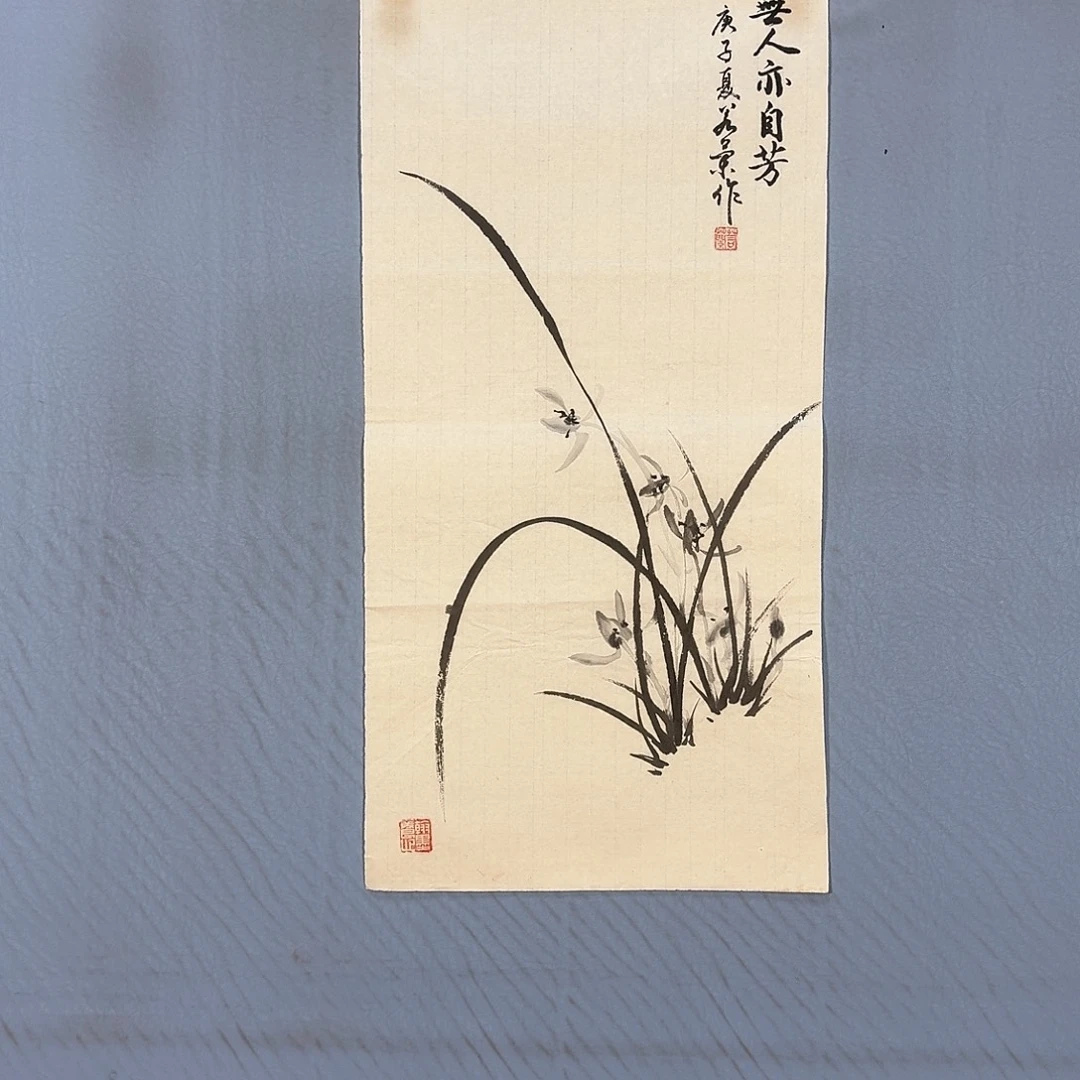 無人亦自芳
庚子夏若景作